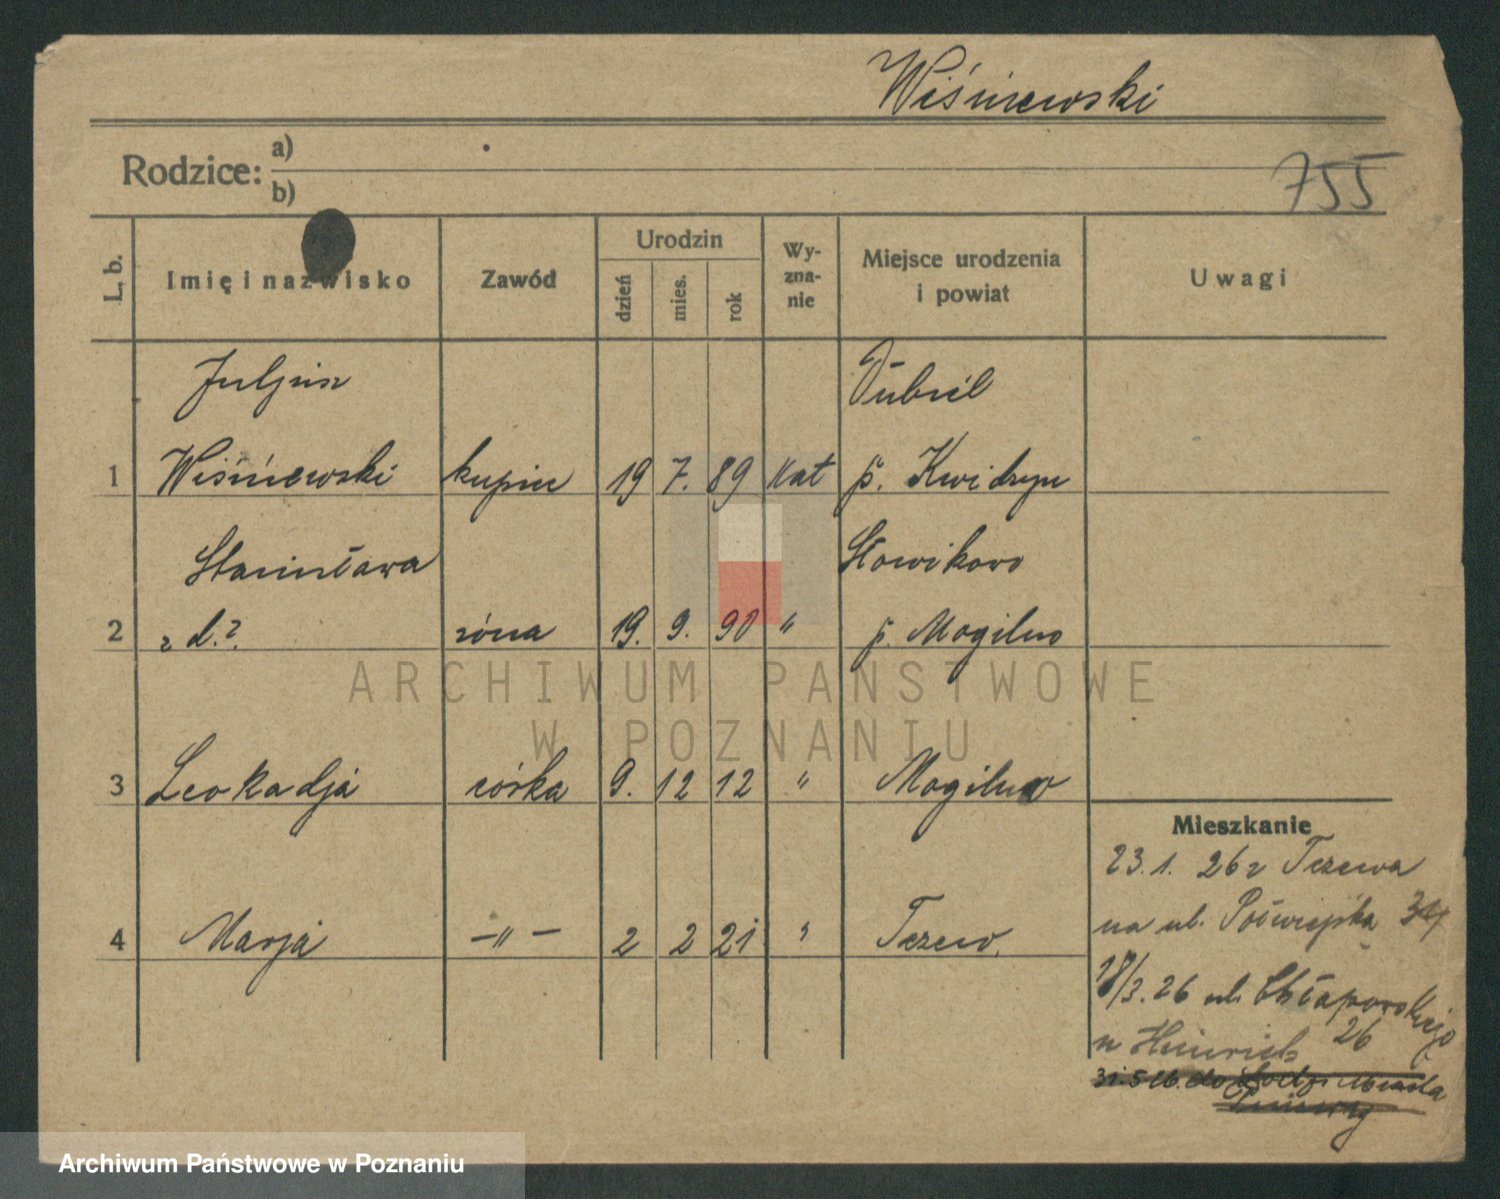 Wiśniewski
755
Rodzice: a)
b)
L. b.
Imię i nazwisko
Zawód
Urodzin
dzień
mies.
rok
Wy-
zna-
nie
Miejsce urodzenia
i powiat
Uwagi
Juljusz Dubiel
1 Wiśniewski kupiec 19 7. 89 kat p. Kwidzyn
Stanisława Słowikowo
2 z d.? żona 19. 9. 90 " p. Mogilno
3 Leokadja córka 9. 12 12 " Mogilno
4 Marja —"— 2 2 21 " Tczew.
Mieszkanie
23.1. 26 z Tczewa
na ul. 34
18/3.26 ul. Chłapowskiego
u Heinrich 26
31.5 26. do
ARCHIWUM PAŃSTWOWE
W POZNANIU
Archiwum Państwowe w Poznaniu